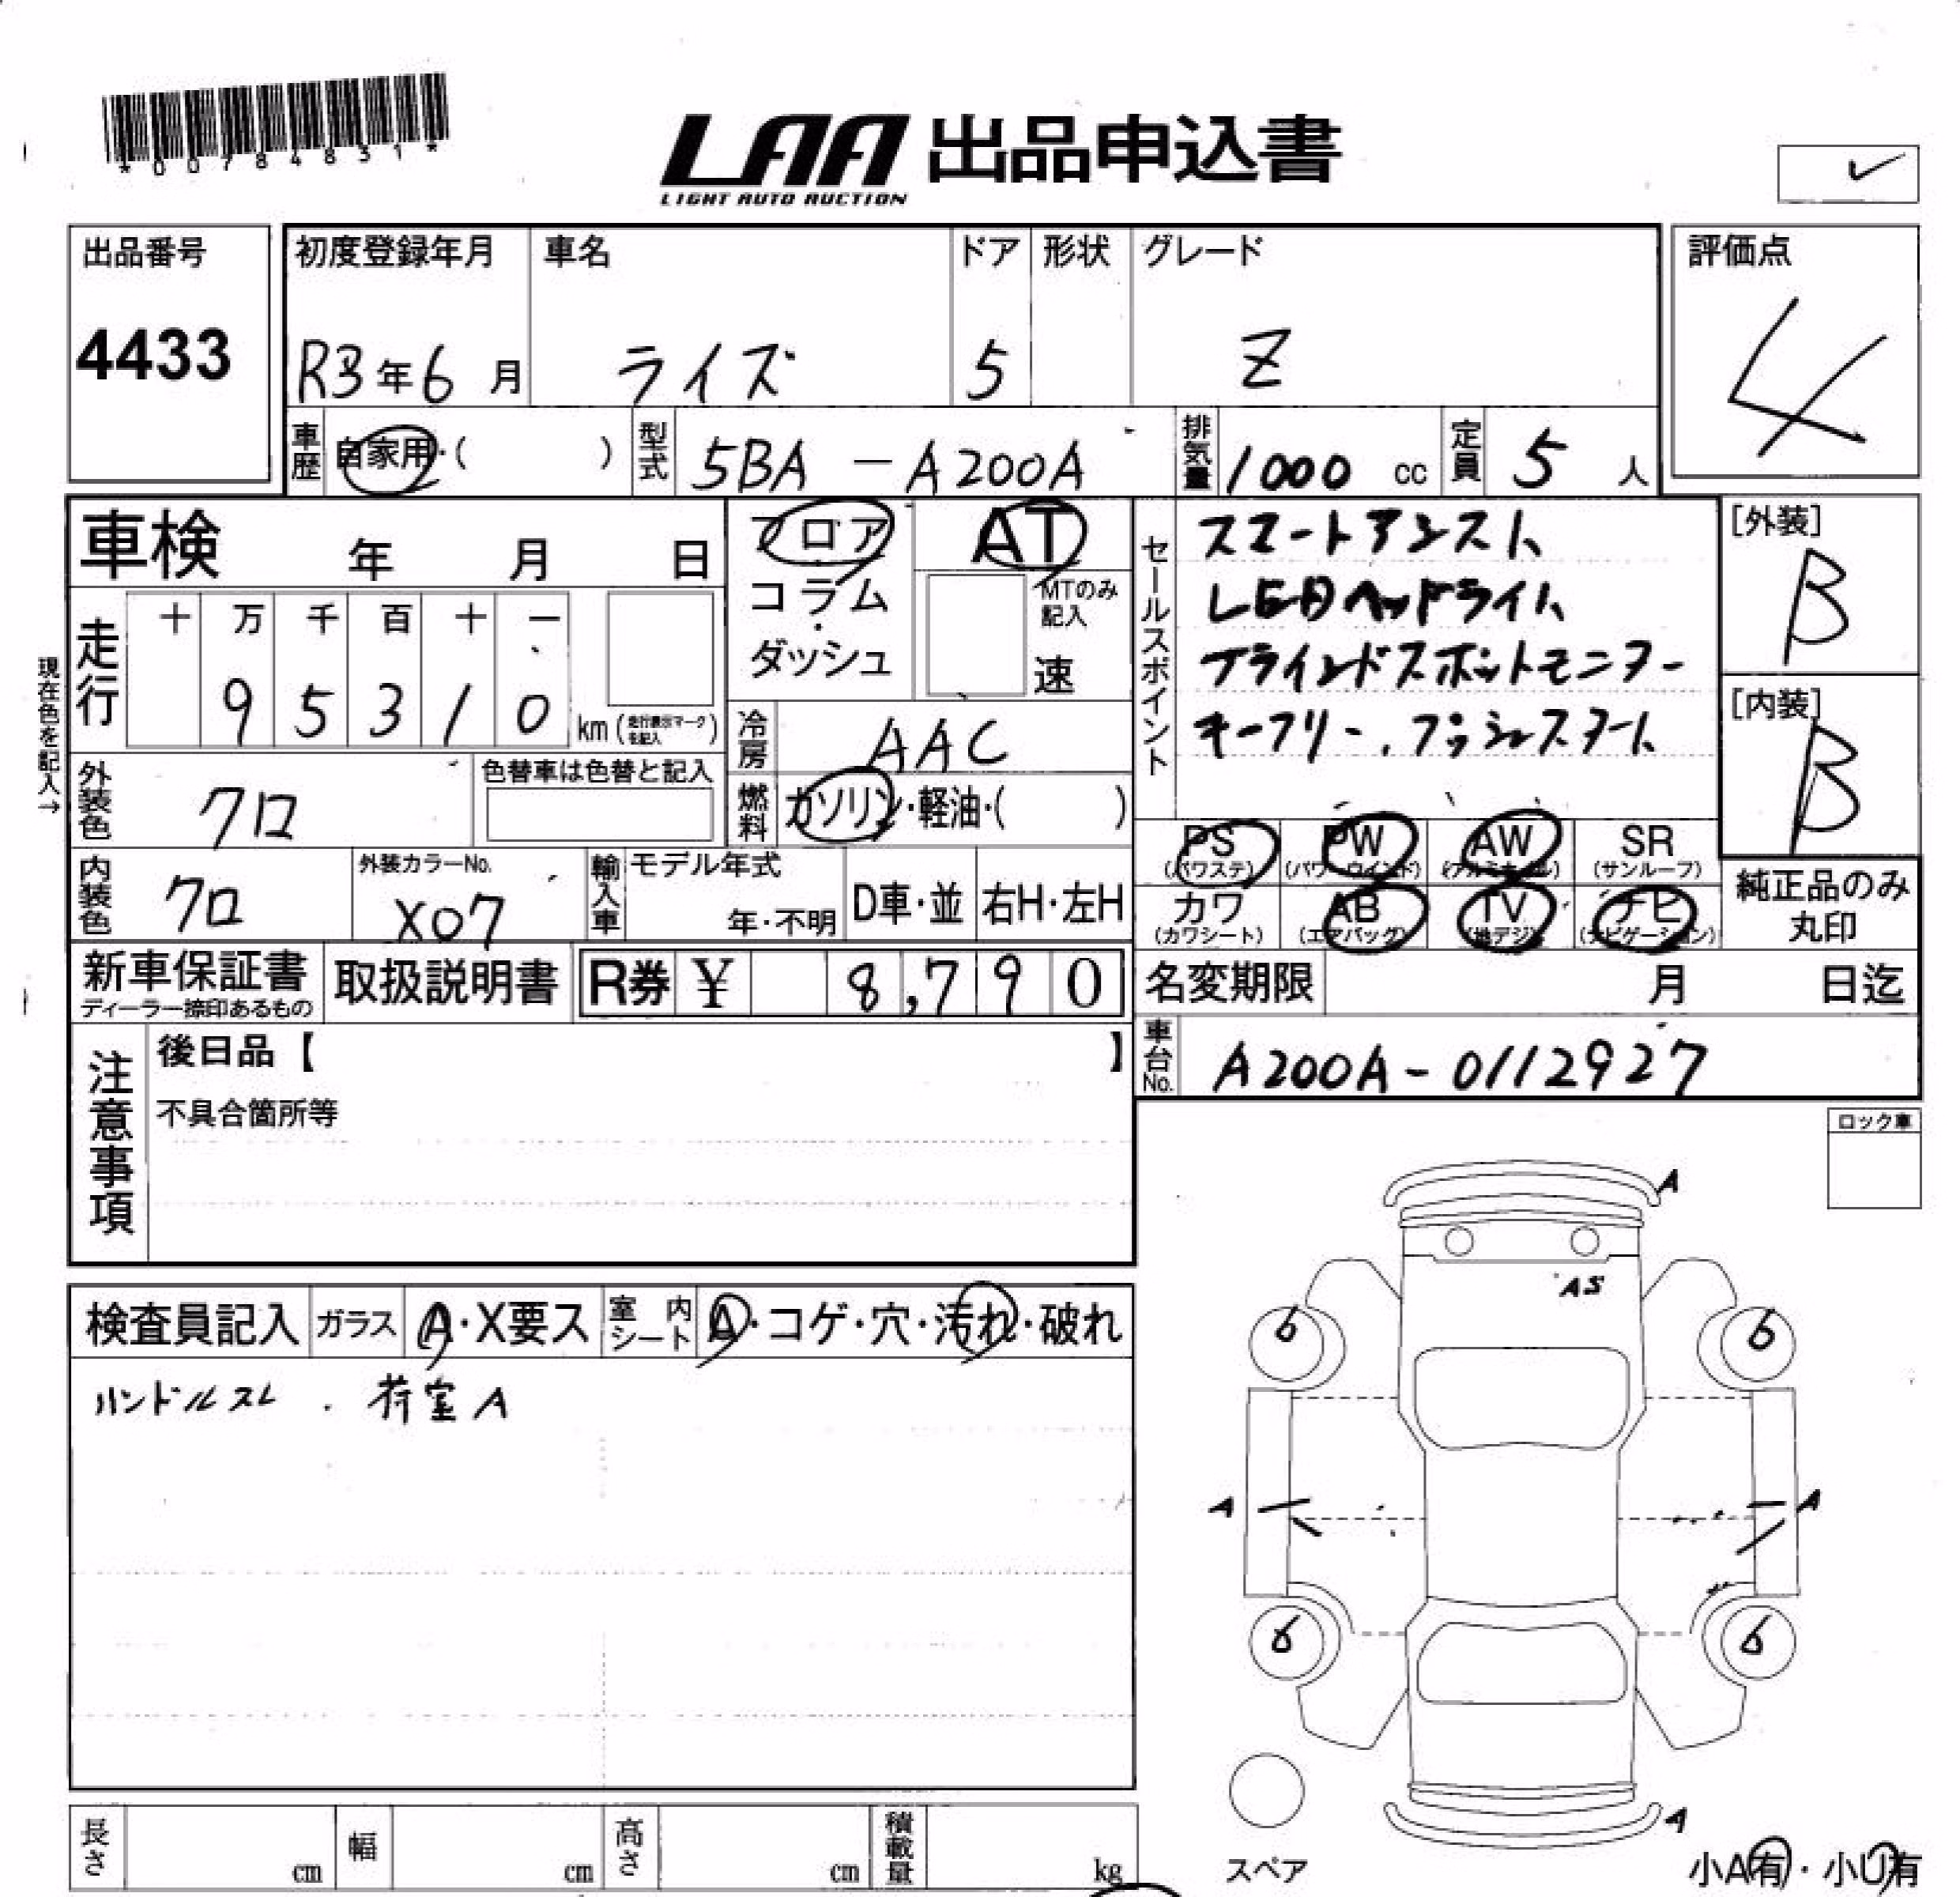 *00784831*
LAA 出品申込書
LIGHT AUTO AUCTION
出品番号
4433
初度登録年月 車名 ドア 形状 グレード
R3年6月 ライズ 5 Z
評価点
4
車歴 自家用・( ) 型式 5BA-A200A 排気量 1000 cc 定員 5 人
車検 年 月 日
フロア
コラム
ダッシュ
AT
MTのみ記入
速
現在色を記入→
走行 十 万 千 百 十 一
9 5 3 1 0 km (走行表示マークを記入)
冷房 AAC
燃料 ガソリン・軽油・( )
外装色 クロ 色替車は色替と記入
内装色 クロ 外装カラーNo. X07
輸入車 モデル年式 年・不明 D車・並 右H・左H
セールスポイント
スマートアシスト
LEDヘッドライト
ブラインドスポットモニター
キーフリー、プッシュスタート
[外装]
B
[内装]
B
PS (パワステ) PW (パワーウインド) AW (アルミホイル) SR (サンルーフ)
カワ (カワシート) AB (エアバッグ) TV (地デジ) ナビ (ナビゲーション)
純正品のみ
丸印
新車保証書
ディーラー捺印あるもの
取扱説明書
R券 ¥ 8,790
名変期限 月 日迄
車台No. A200A-0112927
注意事項
後日品【 】
不具合箇所等
ロック車
検査員記入 ガラス A・X要ス 室内シート A・コゲ・穴・汚れ・破れ
ハンドルスレ . 荷室A
A
AS
6 6
A A
6 6
A
スペア
小A有・小U有
長さ cm 幅 cm 高さ cm 積載量 kg